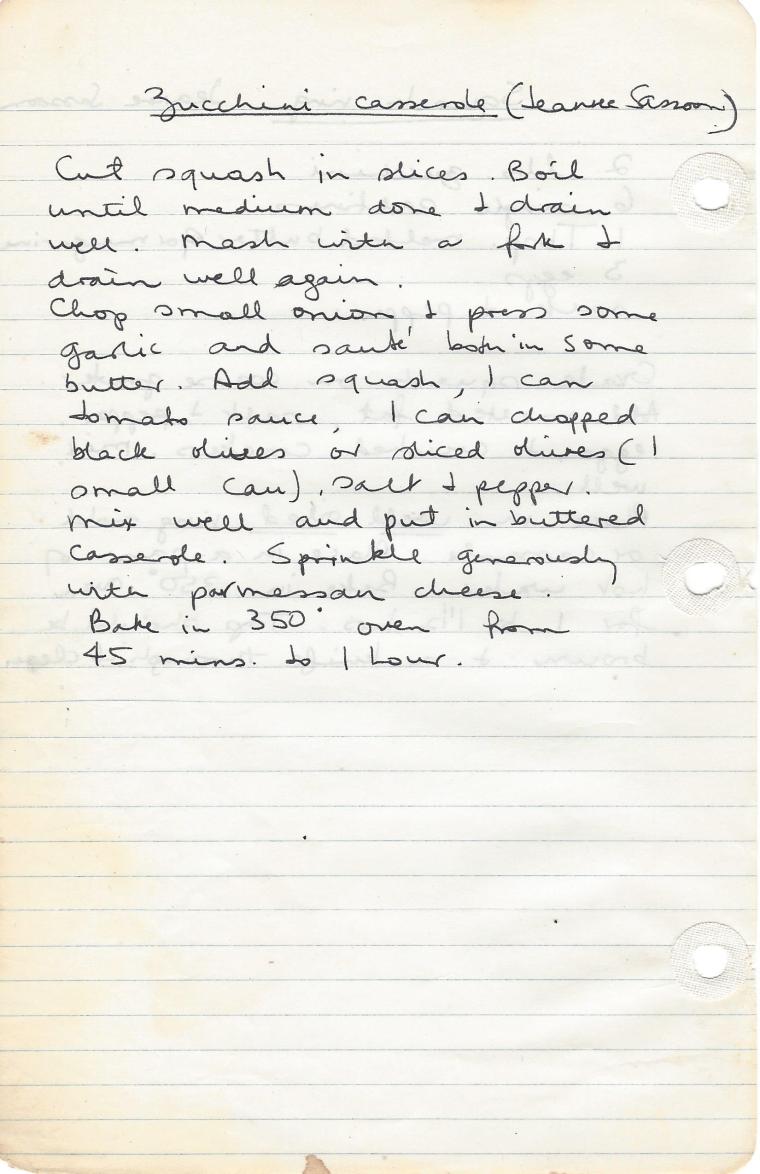 Zucchini casserole (Jeanne Sassoon)
Cut squash in slices. Boil
until medium done & drain
well. Mash with a fork &
drain well again.
Chop small onion, & press some
garlic and sauté both in some
butter. Add squash, 1 can
tomato sauce, 1 can chopped
black olives or sliced olives (1
small can), salt & pepper.
Mix well and put in buttered
casserole. Sprinkle generously
with parmessan cheese.
Bake in 350° oven from
45 mins. to 1 hour.